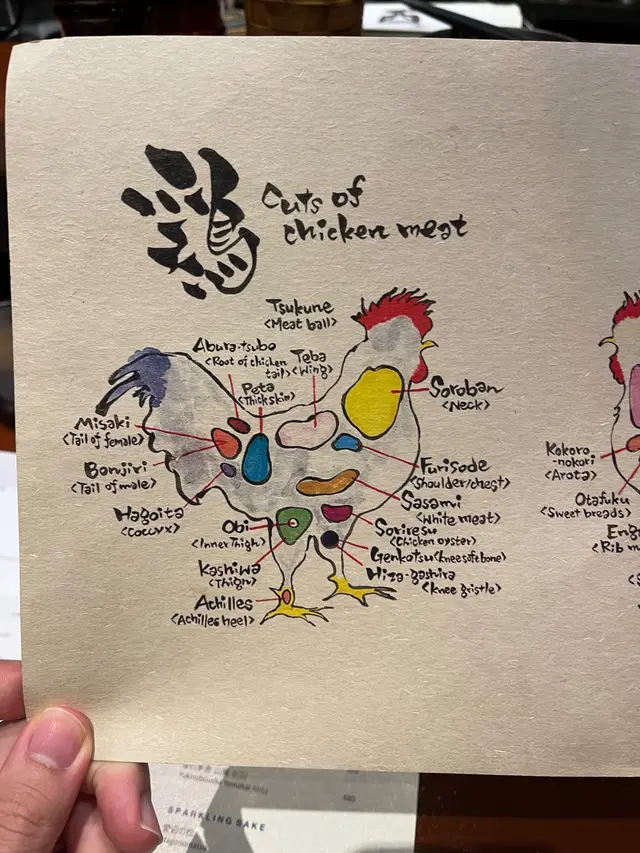 鶏
Cuts of
chicken meat
Tsukune
<Meat ball>
Abura-tsubo
<Root of chicken
tail>
Teba
<Wing>
Peta
<Thick skin>
Soroban
<Neck>
Misaki
<Tail of female>
Bonjiri
<Tail of male>
Furisode
<Shoulder/chest>
Hagoita
<Coccyx>
Sasami
<White meat>
Obi
<Inner Thigh>
Soriresu
<Chicken oyster>
Genkotsu <knee soft bone>
Kashiwa
<Thigh>
Hiza-gashira
<knee gristle>
Achilles
<Achilles heel>
Kokoro
-nokori
<Arota>
Otafuku
<Sweet breads>
<Rib
SPARKLING SAKE